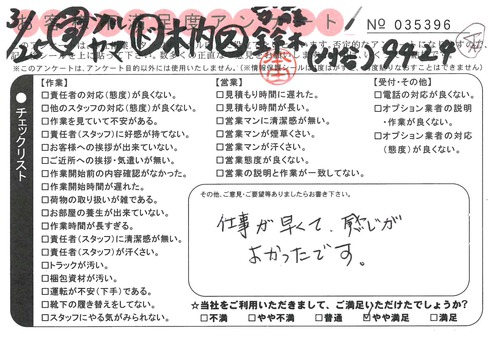 お客様満足度アンケート
No 035396
3/25
木内
※このアンケートは、アンケート目的以外には使用できません。
チェックリスト
【作業】
□責任者の対応(態度)が良くない。
□他のスタッフの対応(態度)が良くない。
□作業を見ていて不安がある。
□責任者(スタッフ)に好感が持てない。
□お客様への挨拶が出来ていない。
□ご近所への挨拶・気遣いが無い。
□作業開始前の内容確認がなかった。
□作業開始時間が遅れた。
□荷物の取り扱いが雑である。
□お部屋の養生が出来ていない。
□作業時間が長すぎる。
□責任者(スタッフ)に清潔感が無い。
□責任者(スタッフ)が汗くさい。
□トラックが汚い。
□梱包資材が汚い。
□運転が不安(下手)である。
□靴下の履き替えをしてない。
□スタッフにやる気がみられない。
【営業】
□見積もり時間に遅れた。
□見積もり時間が長い。
□営業マンに清潔感が無い。
□営業マンが煙草くさい。
□営業マンが汗くさい。
□営業態度が良くない。
□営業の説明と作業が一致してない。
【受付・その他】
□電話の対応が良くない。
□オプション業者の説明
・作業が良くない。
□オプション業者の対応
(態度)が良くない。
その他、ご意見・ご要望等ありましたらお書き下さい。
仕事が早くて、感じが
よかったです。
☆当社をご利用いただきまして、ご満足いただけたでしょうか?
□不満 □やや不満 □普通 ☑やや満足 □満足